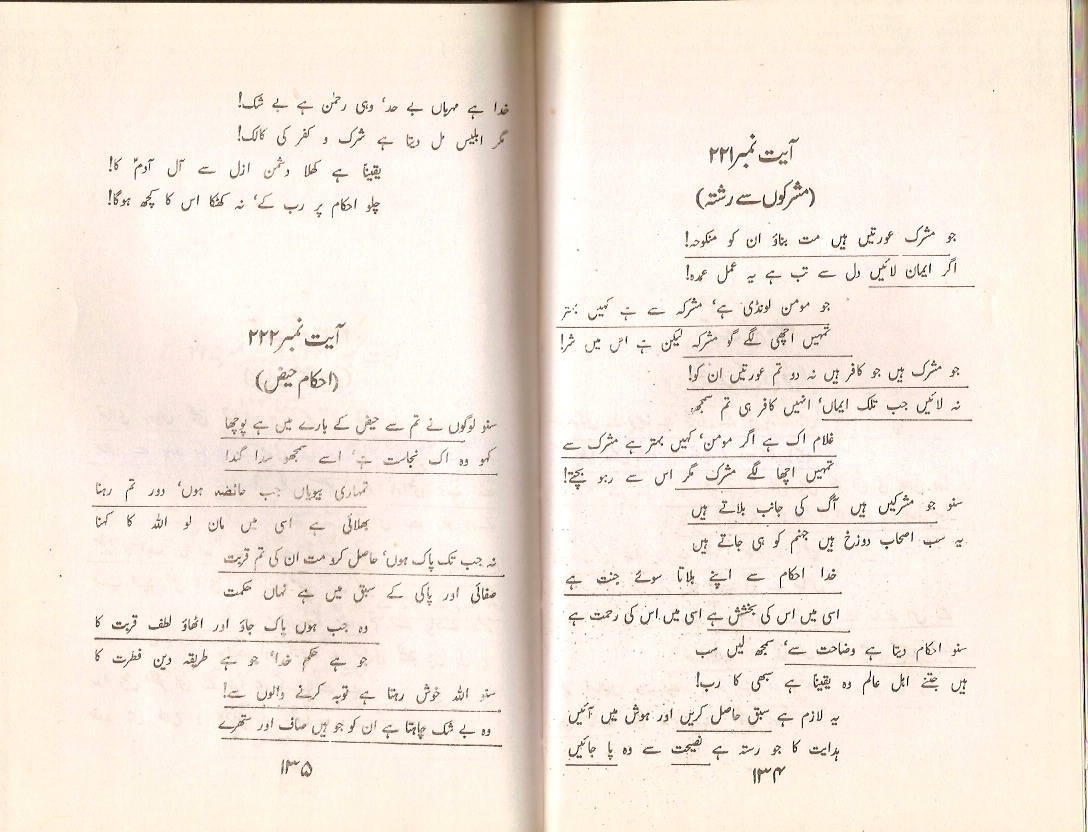 آیت نمبر ۲۲۱
(مشرکوں سے رشتہ)
جو مشرک عورتیں ہیں مت بناؤ ان کو منکوحہ!
اگر ایمان لائیں دل سے تب ہے یہ عمل عمدہ!
جو مومن لونڈی ہے، مشرکہ سے ہے کہیں بہتر
تمہیں اچھی لگے گو مشرکہ لیکن ہے اس میں شر!
جو مشرک ہیں جو کافر ہیں نہ دو تم عورتیں ان کو!
نہ لائیں جب تلک ایماں، انہیں کافر ہی تم سمجھو
غلام اک ہے اگر مومن، کہیں بہتر ہے مشرک سے
تمہیں اچھا لگے مشرک مگر اس سے رہو بچتے!
سنو جو مشرکیں ہیں آگ کی جانب بلاتے ہیں
یہ سب اصحاب دوزخ ہیں جہنم کو ہی جاتے ہیں
خدا احکام سے اپنے بلاتا سوئے جنت ہے
اسی میں اس کی بخشش ہے اسی میں اس کی رحمت ہے
سنو احکام دیتا ہے وضاحت سے، سمجھ لیں سب
ہیں جتنے اہل عالم وہ یقیناً ہے سبھی کا رب!
یہ لازم ہے سبق حاصل کریں اور ہوش میں آئیں
ہدایت کا جو رستہ ہے نصیحت سے وہ پا جائیں
۱۳۴
خدا ہے مہرباں بے حد، وہی رحمٰن ہے بے شک!
مگر ابلیس مل دیتا ہے شرک و کفر کی کالک!
یقیناً ہے کھلا دشمن ازل سے آل آدمؑ کا!
چلو احکام پر رب کے، نہ کھٹکا اس کا کچھ ہوگا!
آیت نمبر ۲۲۲
(احکام حیض)
سنو لوگوں نے تم سے حیض کے بارے میں ہے پوچھا
کہو وہ اک نجاست ہے، اسے سمجھو سدا گندا
تمہاری بیویاں جب حائضہ ہوں، دور تم رہنا
بھلائی ہے اسی میں مان لو اللہ کا کہنا
نہ جب تک پاک ہوں، حاصل کرو مت ان کی تم قربت
صفائی اور پاکی کے سبق میں ہے نہاں حکمت
وہ جب ہوں پاک جاؤ اور اٹھاؤ لطف قربت کا
جو ہے حکم خدا، جو ہے طریقہ دین فطرت کا
سنو اللہ خوش رہتا ہے توبہ کرنے والوں سے!
وہ بے شک چاہتا ہے ان کو جو ہیں صاف اور ستھرے
۱۳۵